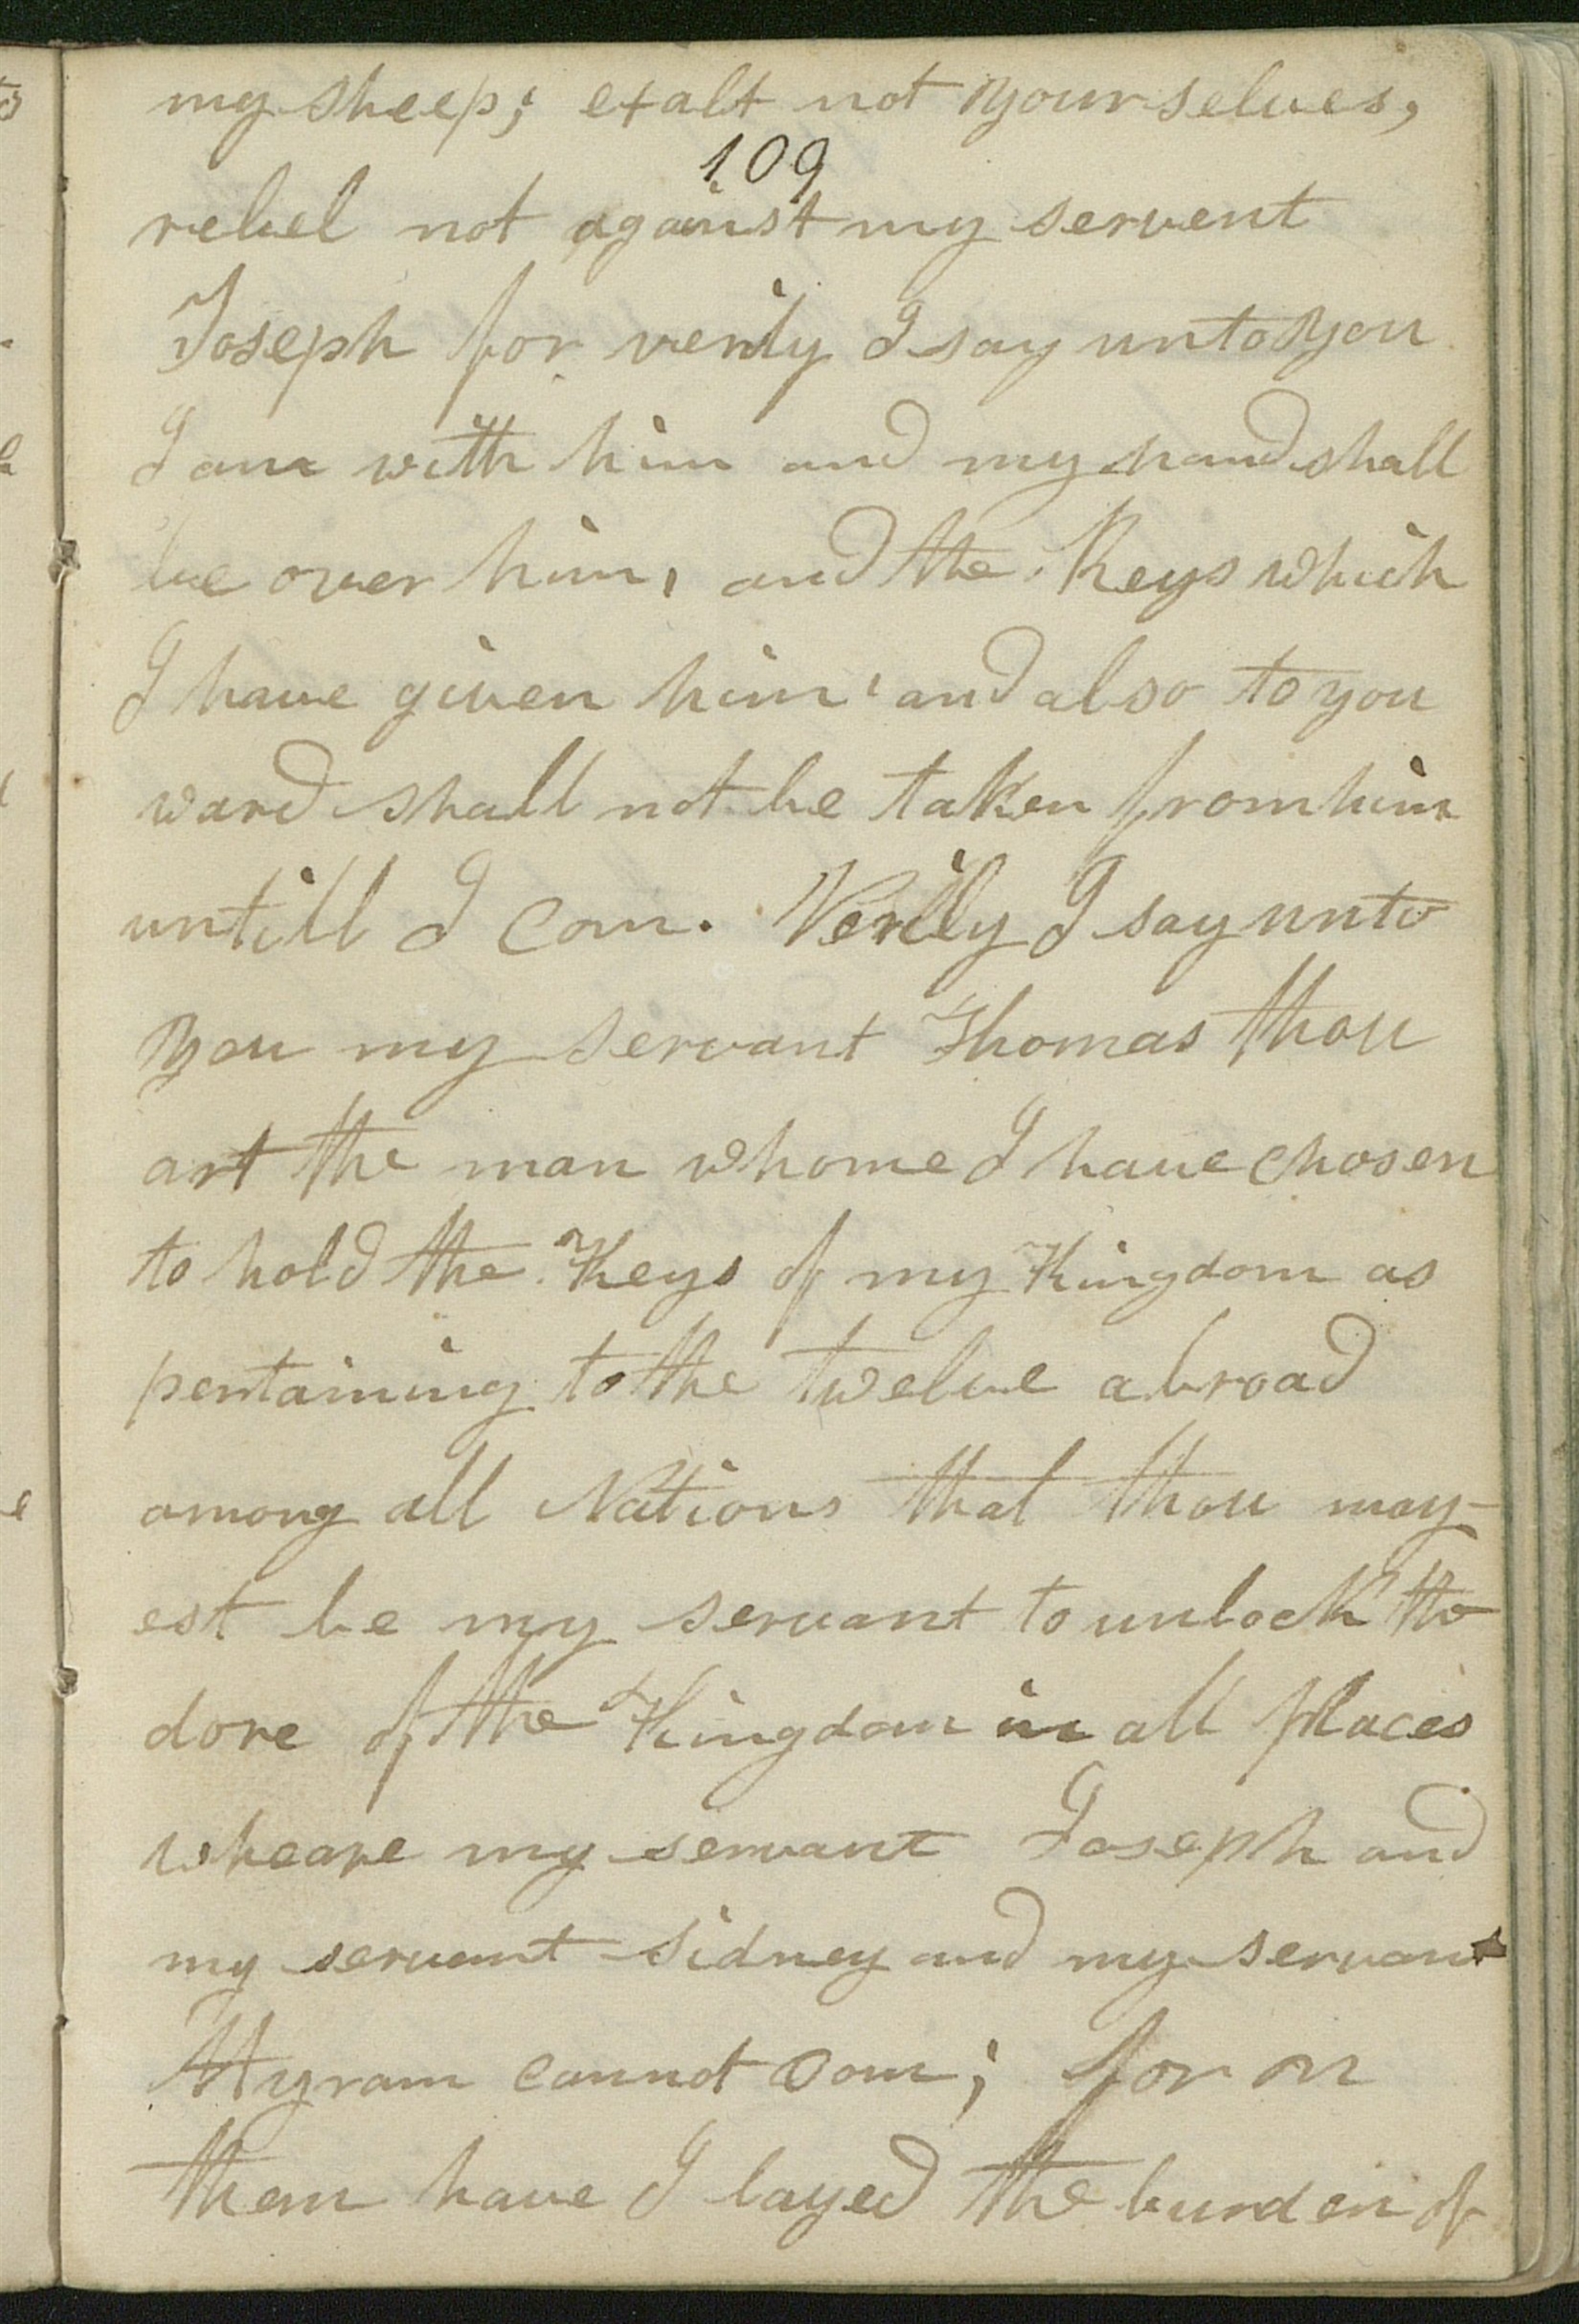 my sheep; exalt not yourselves,
109
rebel not against my servent
Joseph for verily I say unto you
I am with him and my hand shall
be over him, and the Keys which
I have given him, and also to you
ward shall not be taken from him
untill I Com. Verily I say unto
you my servant Thomas thou
art the man whome I have chosen
to hold the Keys of my Kingdom as
pertaining to the twelve abroad
among all Nations that thou may-
est be my servant to unlock the
dore of the Kingdom in all places
wheare my servant Joseph and
my servant Sidney and my servant
Hyram cannot Com; for on
them have I layed the burden of